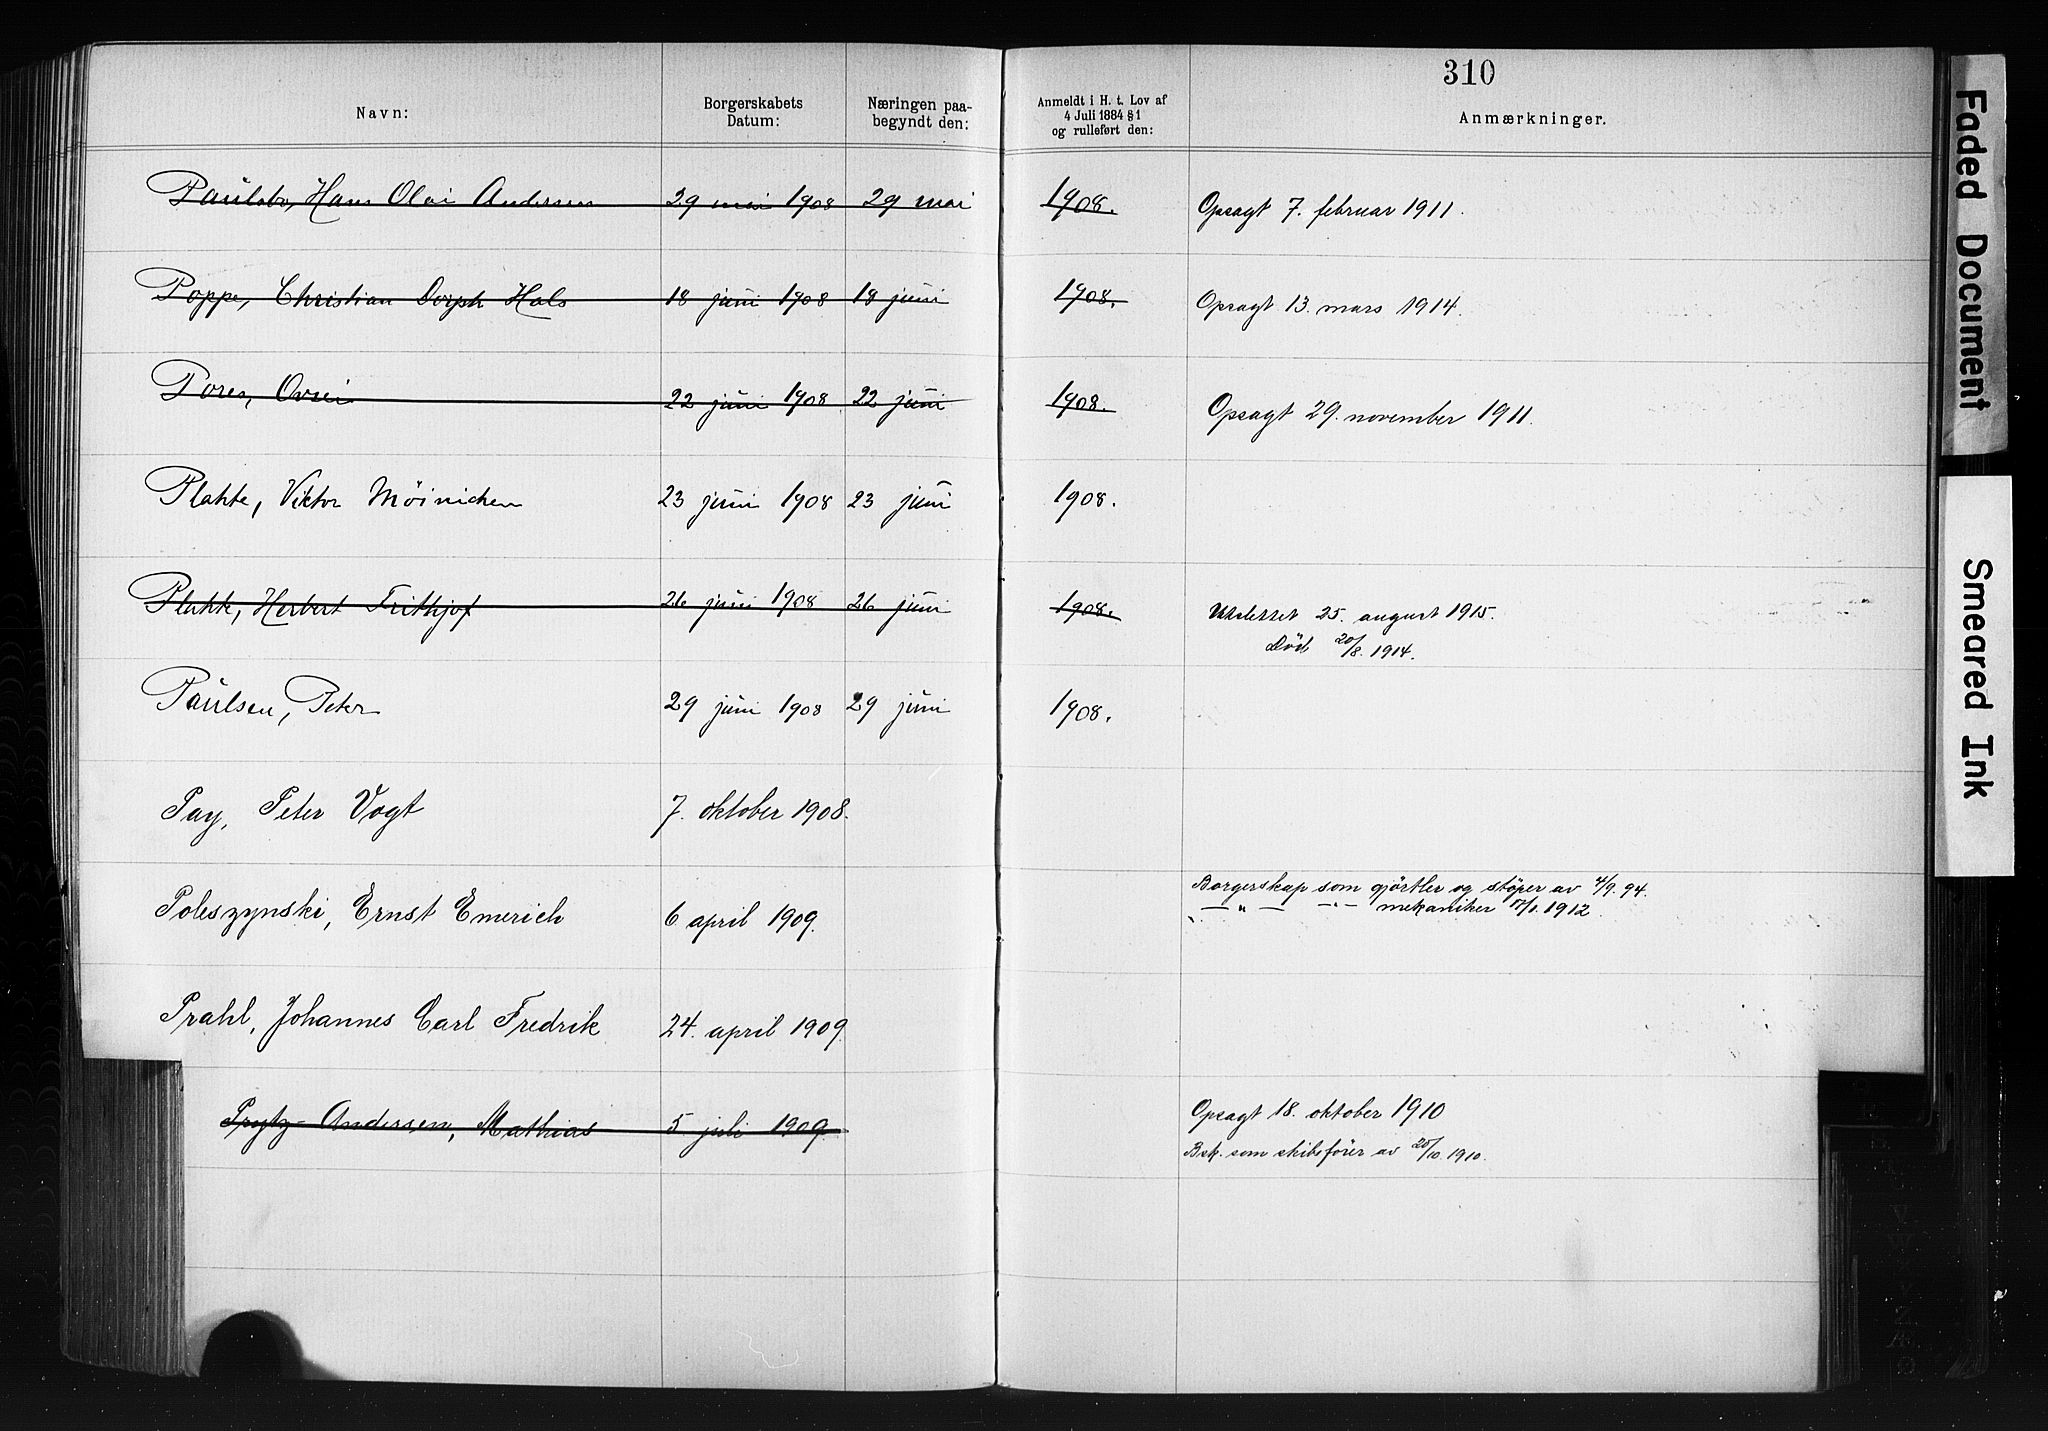 310
Navn: Borgerskabets Datum: Næringen paa-begyndt den: Anmeldt i H. t. Lov af 4 Juli 1884 § 1 og rulleført den: Anmærkninger.
Paulsbo, Hans Olai Andersen 29 mai 1908 29 mai 1908. Opsagt 7. februar 1911.
Poppe, Christian Dorph Hals 18 juni 1908 18 juni 1908. Opsagt 13. mars 1914.
Pores, Ovsei 22 juni 1908 22 juni 1908. Opsagt 29. november 1911.
Plahte, Viktor Möinichen 23 juni 1908 23 juni 1908.
Plahte, Herbert Frithjof 26 juni 1908 26 juni 1908. Utslettet 25. august 1915.
Död 20/8. 1914.
Paulsen, Peter 29 juni 1908 29 juni 1908.
Pay, Peter Vogt 7. oktober 1908.
Poleszynski, Ernst Emerich 6 april 1909. Borgerskap som gjörtler og stöper av 4/9. 94.
— " — — " — mekaniker 17/1. 1912.
Prahl, Johannes Carl Fredrik 24. april 1909.
Prytz-Andersen, Mathias 5 juli 1909. Opsagt 18. oktober 1910
Bsk. som skibsförer av 20/10. 1910.
Faded Document
Smeared Ink